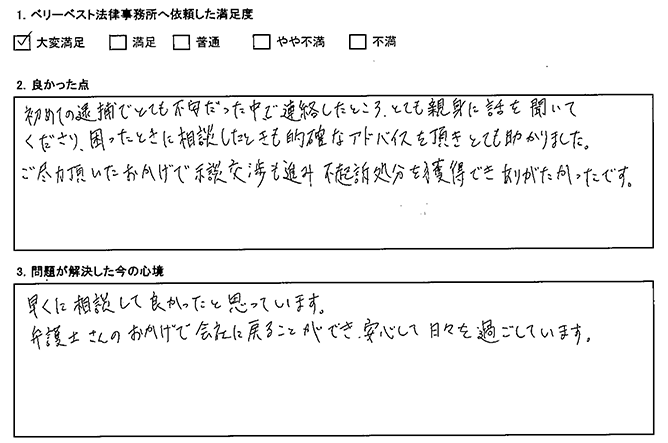 1. ベリーベスト法律事務所へ依頼した満足度
☑ 大変満足 □ 満足 □ 普通 □ やや不満 □ 不満
2. 良かった点
初めての逮捕でとても不安だった中で連絡したところ、とても親身に話を聞いて
くださり、困ったときに相談したときも的確なアドバイスを頂きとても助かりました。
ご尽力頂いたおかげで示談交渉も進み不起訴処分を獲得できありがたかったです。
3. 問題が解決した今の心境
早くに相談して良かったと思っています。
弁護士さんのおかげで会社に戻ることができ、安心して日々を過ごしています。